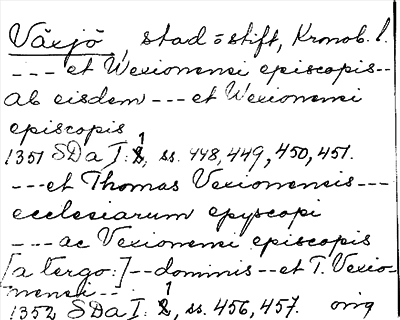 Växjö, stad o stift, Kronob. l.
--- et Wexionensi episcopis--
Ab eisdem --- et Wexionensi
episcopis
1351 SD a I: 1, ss. 448, 449, 450, 451.
---et Thomas Vexionensis ---
ecclesiarum epyscopi
--- ac Vexionensi episcopis
[a tergo:]--dominis--et T. Vexio-
nensi--
1352 SD a I: 1, ss. 456, 457. orig